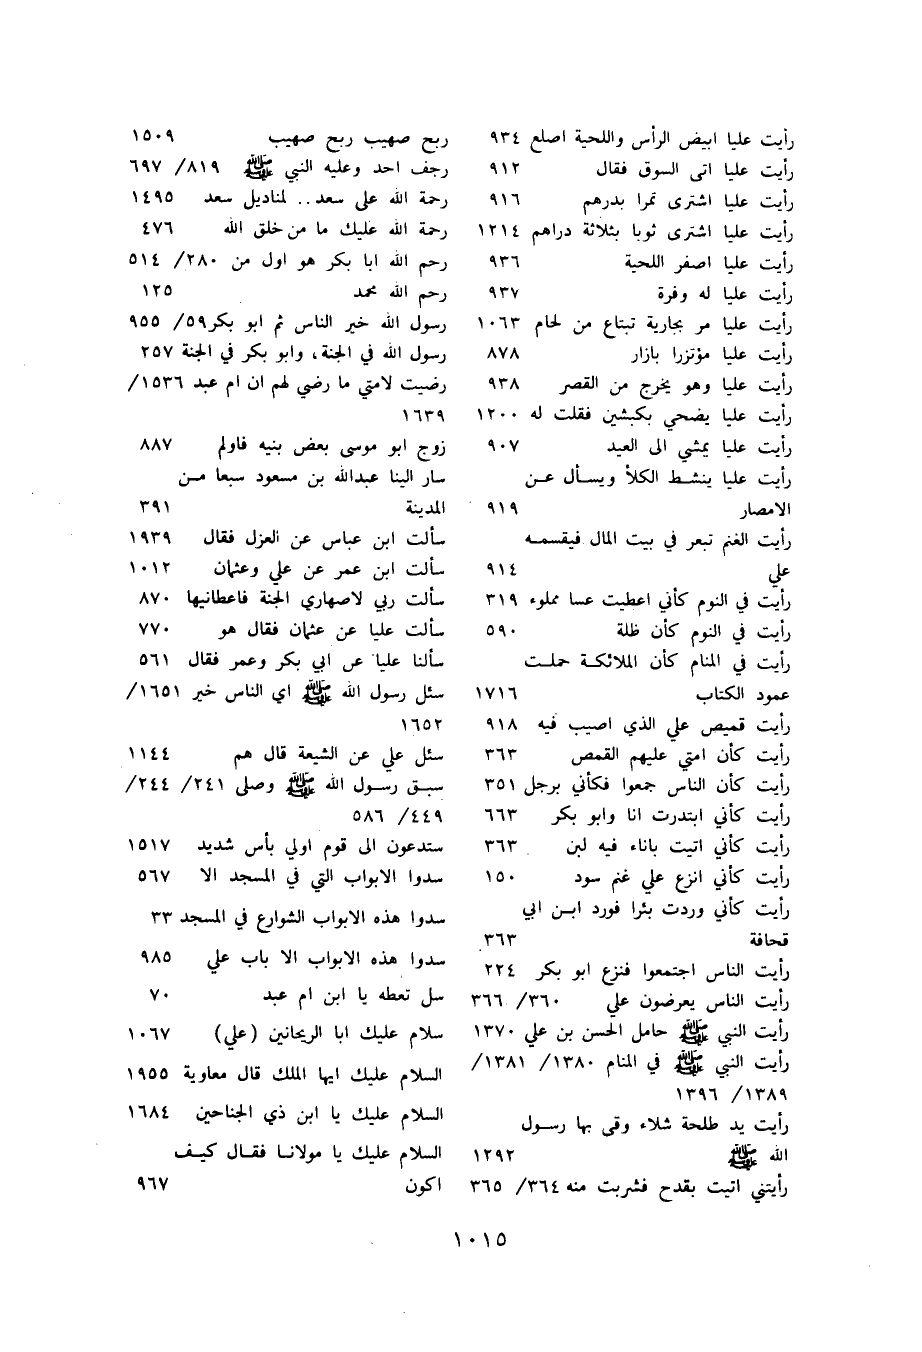 رأيت عليا ابيض الرأس واللحية اصلع ٩٣٤
رأيت عليا اتى السوق فقال ٩١٢
رأيت عليا اشترى تمرا بدرهم ٩١٦
رأيت عليا اشترى ثوبا بثلاثة دراهم ١٢١٤
رأيت عليا اصفر اللحية ٩٣٦
رأيت عليا له وفرة ٩٣٧
رأيت عليا مر بجارية تبتاع من لحام ١٠٦٣
رأيت عليا مؤتزرا بازار ٨٧٨
رأيت عليا وهو يخرج من القصر ٩٣٨
رأيت عليا يضحي بكبشين فقلت له ١٢٠٠
رأيت عليا يمشي الى العيد ٩٠٧
رأيت عليا ينشط الكلأ ويسأل عن
الامصار ٩١٩
رأيت الغنم تبعر في بيت المال فيقسمه
علي ٩١٤
رأيت في النوم كأني اعطيت عسا مملوء ٣١٩
رأيت في النوم كأن ظلة ٥٩٠
رأيت في المنام كأن الملائكة حملت
عمود الكتاب ١٧١٦
رأيت قميص علي الذي اصيب فيه ٩١٨
رأيت كأن امتي عليهم القمص ٣٦٣
رأيت كأن الناس جمعوا فكأني برجل ٣٥١
رأيت كأني ابتدرت انا وابو بكر ٦٦٣
رأيت كأني اتيت باناء فيه لبن ٣٦٣
رأيت كأني انزع علي غنم سود ١٥٠
رأيت كأني وردت بئرا فورد ابن ابي
قحافة ٣٦٣
رأيت الناس اجتمعوا فنزع ابو بكر ٢٢٤
رأيت الناس يعرضون علي ٣٦٠/ ٣٦٦
رأيت النبي ﷺ حامل الحسن بن علي ١٣٧٠
رأيت النبي ﷺ في المنام ١٣٨٠/ ١٣٨١/
١٣٨٩/ ١٣٩٦
رأيت يد طلحة شلاء وقى بها رسول
الله ﷺ ١٢٩٢
رأيتني اتيت بقدح فشربت منه ٣٦٤/ ٣٦٥
ربح صهيب ربح صهيب ١٥٠٩
رجف احد وعليه النبي ﷺ ٨١٩/ ٦٩٧
رحمة الله على سعد.. لمناديل سعد ١٤٩٥
رحمة الله عليك ما من خلق الله ٤٧٦
رحم الله ابا بكر هو اول من ٢٨٠/ ٥١٤
رحم الله محمد ١٢٥
رسول الله خير الناس ثم ابو بكر٥٩/ ٩٥٥
رسول الله في الجنة، وابو بكر في الجنة ٢٥٧
رضيت لامتي ما رضي لهم ان ام عبد ١٥٣٦/
١٦٣٩
زوج ابو موسى بعض بنيه فاولم ٨٨٧
سار الينا عبدالله بن مسعود سبعا من
المدينة ٣٩١
سألت ابن عباس عن العزل فقال ١٩٣٩
سألت ابن عمر عن علي وعثمان ١٠١٢
سألت ربي لاصهاري الجنة فاعطانيها ٨٧٠
سألت عليا عن عثمان فقال هو ٧٧٠
سألنا عليا عن ابي بكر وعمر فقال ٥٦١
سئل رسول الله ﷺ اي الناس خير ١٦٥١/
١٦٥٢
سئل علي عن الشيعة قال هم ١١٤٤
سبق رسول الله ﷺ وصلى ٢٤١/ ٢٤٤/
٤٤٩/ ٥٨٦
ستدعون الى قوم اولي بأس شديد ١٥١٧
سدوا الابواب التي في المسجد الا ٥٦٧
سدوا هذه الابواب الشوارع في المسجد ٣٣
سدوا هذه الابواب الا باب علي ٩٨٥
سل تعطه يا ابن ام عبد ٧٠
سلام عليك ابا الريحانين (علي) ١٠٦٧
السلام عليك ايها الملك قال معاوية ١٩٥٥
السلام عليك يا ابن ذي الجناحين ١٦٨٤
السلام عليك يا مولانا فقال كيف
اكون ٩٦٧
١٠١٥